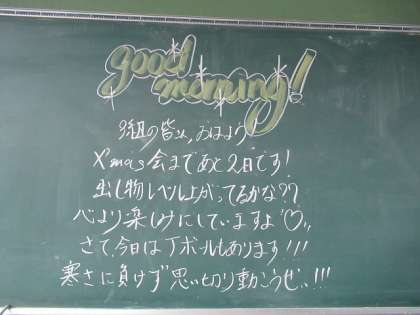 good
morning!
3組の皆さん、おはよう
X'mas会まであと2日です!
出し物レベル上がってるかな??
心より楽しみにしていますよ♡!!
さて、今日はTボールもあります!!!
寒さに負けず思い切り動こうぜ!!!